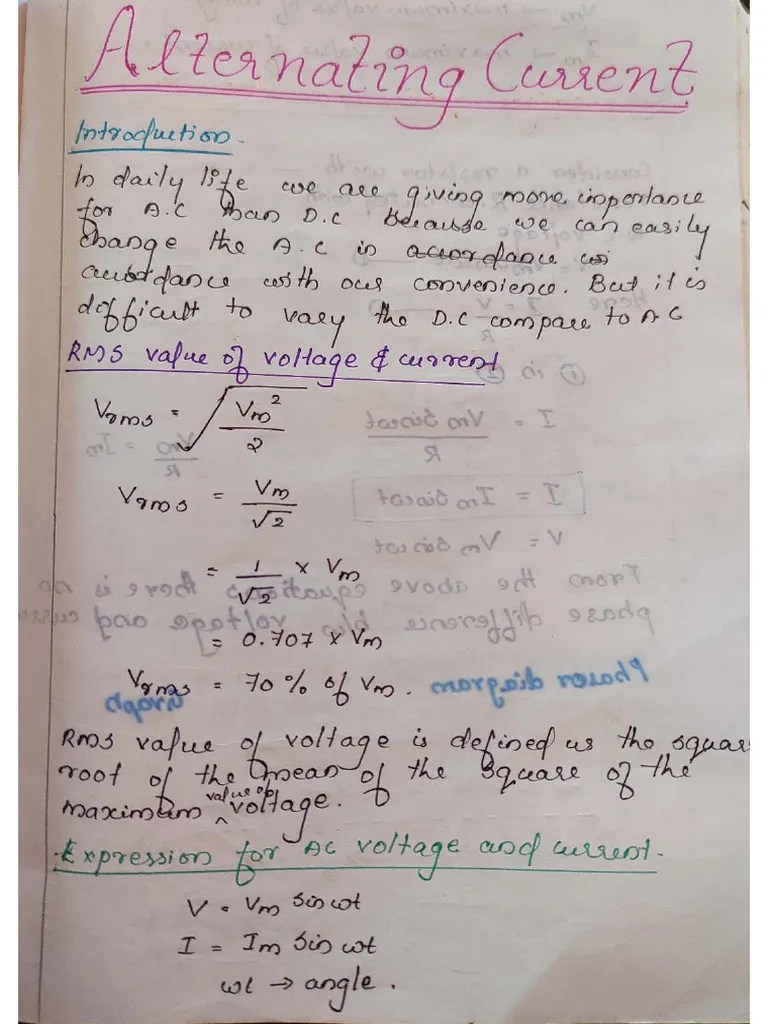 Alternating Current
Introduction.
In daily life we are giving more importance
for A.C than D.C because we can easily
change the A.C in accordance
with our convenience. But it is
difficult to vary the D.C compare to A C
RMS value of voltage & current
Vrms = √(Vm²/2)
Vrms = Vm/√2
= 1/√2 × Vm
= 0.707 × Vm
Vrms = 70% of Vm.
RMS value of voltage is defined as the squar
root of the mean of the square of the
maximum value of voltage.
Expression for AC voltage and current.
V = Vm sin ωt
I = Im sin ωt
ωt → angle.